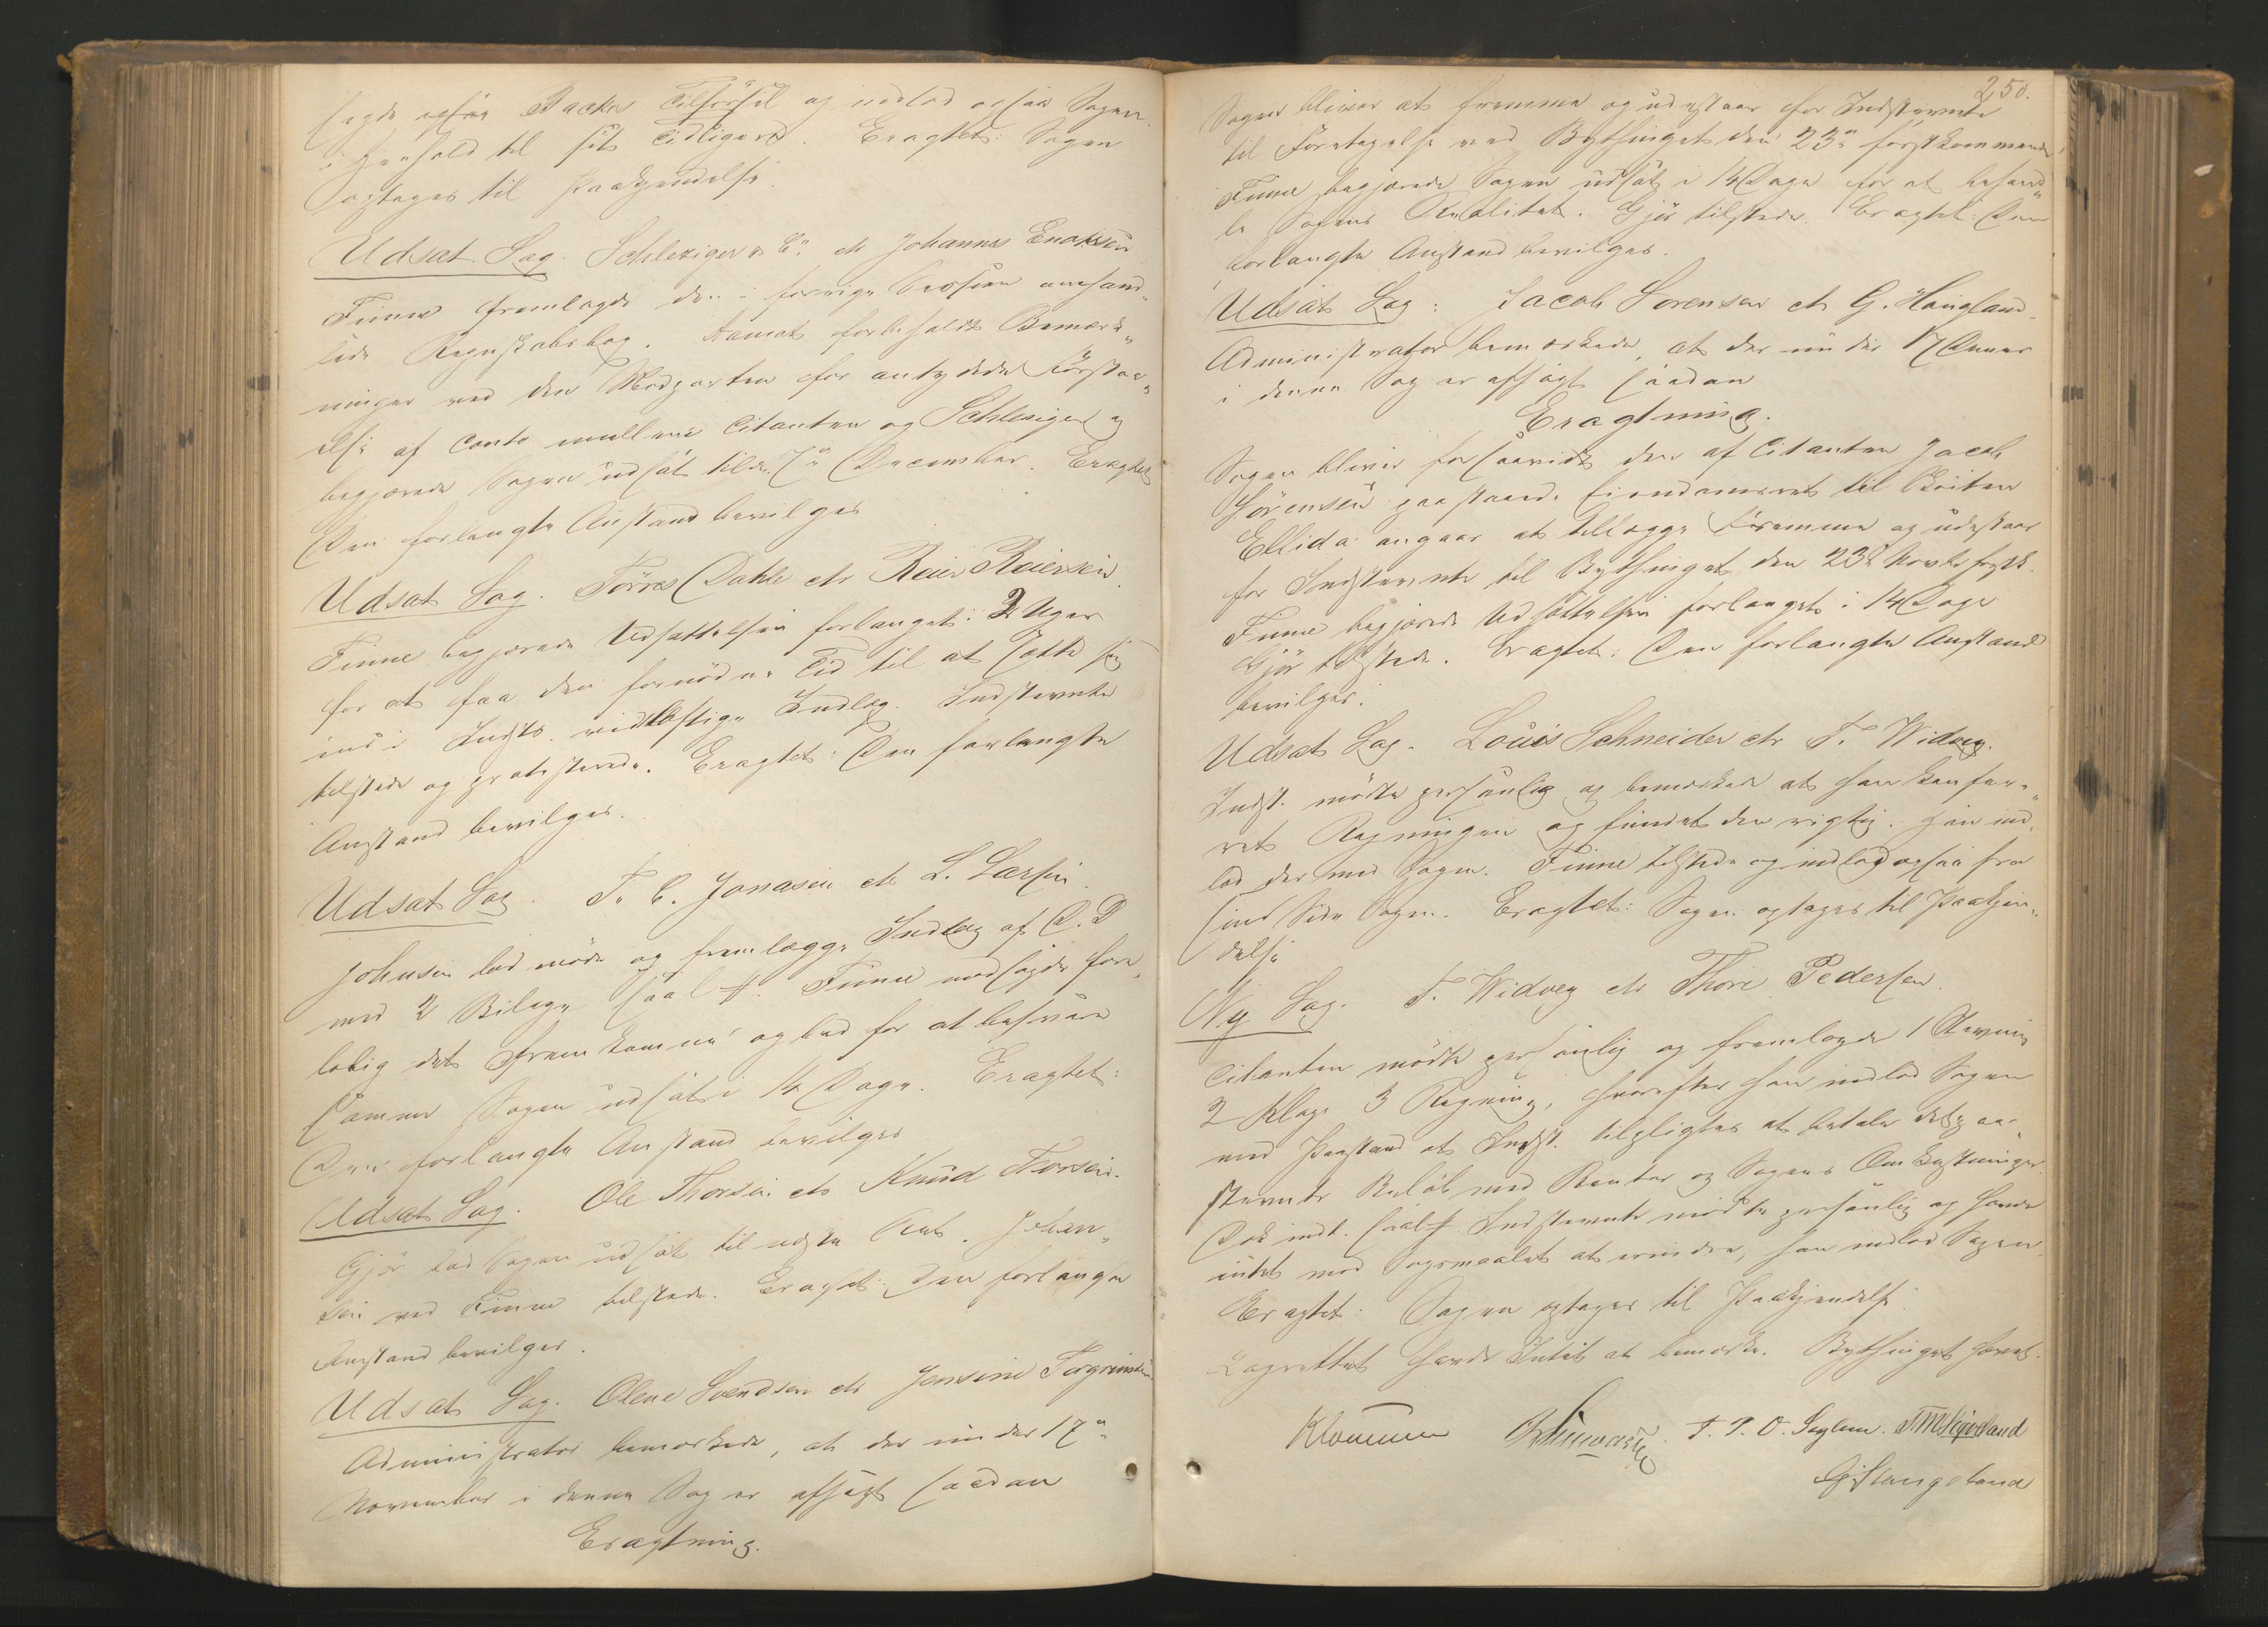 sagde ogsaa Backes Tilförsel og indlod ogsaa Sagen
i Henhold til sit Tidligere. Eragtet: Sagen
optages til Paakjendelse.
Udsat Sag. Schlesiger & Co ctr Johannes Enoksen
Finne fremlagde den i forrige Session omhand„
lede Regnskabsbog. Samt forbeholdt Bemærk„
ninger ved den Modparten for antydede Forstaa„
else af Conto mellem Citanten og Schlesiger og
begjærede Sagen udsat til den 7de December. Eragtet
Den forlangte Anstand bevilges
Udsat Sag. Törres Dahle ctr Reier Reiersen.
Finne begjærede Udsættelsen forlænget i 2 Uger
for at faa den fornödne Tid til at sætte sig
ind i Indsts. vidtløftige Indlæg. Indstevnte
tilstede og protesterede. Eragtet: Den forlangte
Anstand bevilges.
Udsat Sag. T. C. Jonasen ctr L. Larsen.
Johnsen lod möde og fremlægge Indlæg af D. D
med 2 Bilage saal. Finne modsagde fore„
lobig det Fremkomne og bad for at besvare
samme Sagen udsat i 14 Dage. Eragtet:
Den forlangte Anstand bevilges
Udsat Sag. Ole Thorsen ctr Knud Torsen.
Gjör bad Sagen udsat til næste Ret. Johan„
sen ved Finne tilstede. Eragtet: Den forlangte
Anstand bevilges.
Udsat Sag. Olene Svendsen ctr Jensine Torgrimsen
Administrator bemærkede, at der under 17de
November i denne Sag er afsagt saadan
Eragtning.
250.
Sagen bliver at fremme og udestaar for Indstevnte
til Foretagelse ved Bythinget den 23de förstkommende.
Finne begjærede Sagen udsat i 14 Dage for at behand„
le Sagens Realitet. Gjör tilstede. Eragtet: Den
forlangte Anstand bevilges.
Udsat Sag: Jacob Sorensen ctr G. Haugland.
Administrator bemærkede, at der under 17 Dennes
i denne Sag er afsagt saadan
Eragtning.
Sagen bliver forsaavidt den af Citanten Jacob
Sörensen paastaaede Eiendomsret til Sköiten
Ellida angaar at tillægge Fremme og udestaar
for Indstevnte til Bythinget den 23de Novbr förstk.
Finne begjærede Udsættelsen forlænget i 14 Dage
Gjör tilstede. Eragtet: Den forlangte Anstand
bevilges.
Udsat Sag. Louis Schneider ctr T. Widvey.
Indst. mödte personlig og bemærkede at han konfere„
ret Regningen og fundet den rigtig. Han ind„
lod dermed Sagen. Finne tilstede og indlod ogsaa fra
sin Side Sagen. Eragtet: Sagen optages til Paakjen„
delse
Ny Sag. T. Widvey ctr Thore Pedersen.
Citanten mödte personlig og fremlagde 1 Stevning
2 Klage 3 Regning, hvorefter han indlod Sagen
med Paastand at Indst. tilpligtes at betale det paa„
stevnte Beløb med Renter og Sagens Omkostninger.
Dok. indt. saal. Indstevnte mödte personlig og havde
intet mod Sagsmaalet at erindre, han indlod Sagen.
Eragtet: Sagen optages til Paakjendelse
Lagrettet havde Intet at bemærke. Bythinget hævet.
T. T. O. Seglem. T M Sigveland
G Stangeland